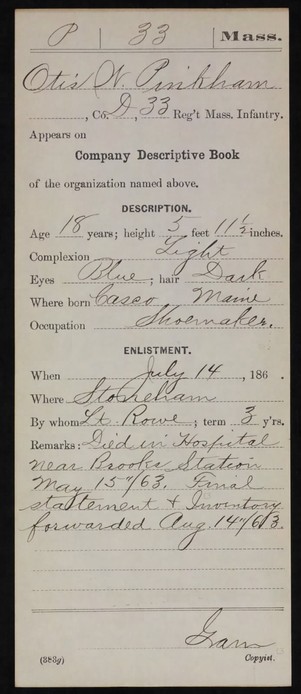 P | 33 | Mass.
Otis N. Pinkham
, Co. D, 33 Reg't Mass. Infantry.
Appears on
Company Descriptive Book
of the organization named above.
DESCRIPTION.
Age 18 years; height 5 feet 11½ inches.
Complexion Light
Eyes Blue; hair Dark
Where born Casco Maine
Occupation Shoemaker.
ENLISTMENT.
When July 14, 186 .
Where Stoneham
By whom Lt. Rowe; term 3 y'rs.
Remarks: Died in Hospital
near Brooks Station
May 15"/63. Final
statement & Inventory
forwarded Aug. 14"/63.
(383g) Copyist.